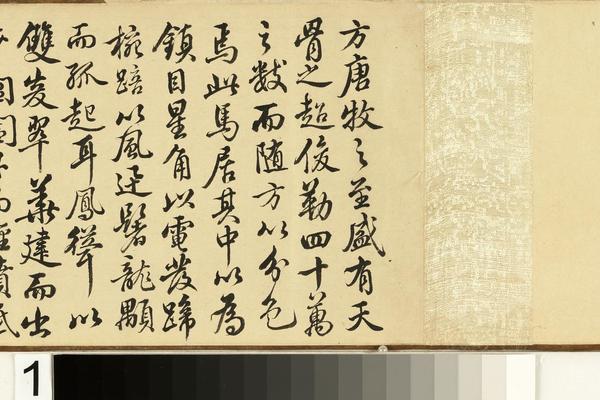 方唐牧之至盛有天
骨之超俊勒四十萬
之數而随方以分色
焉此馬居其中以為
鎮目星角以電發蹄
椀踣以風迅鬐龍顒
而孤起耳鳳聳以
雙翠華建而出
1